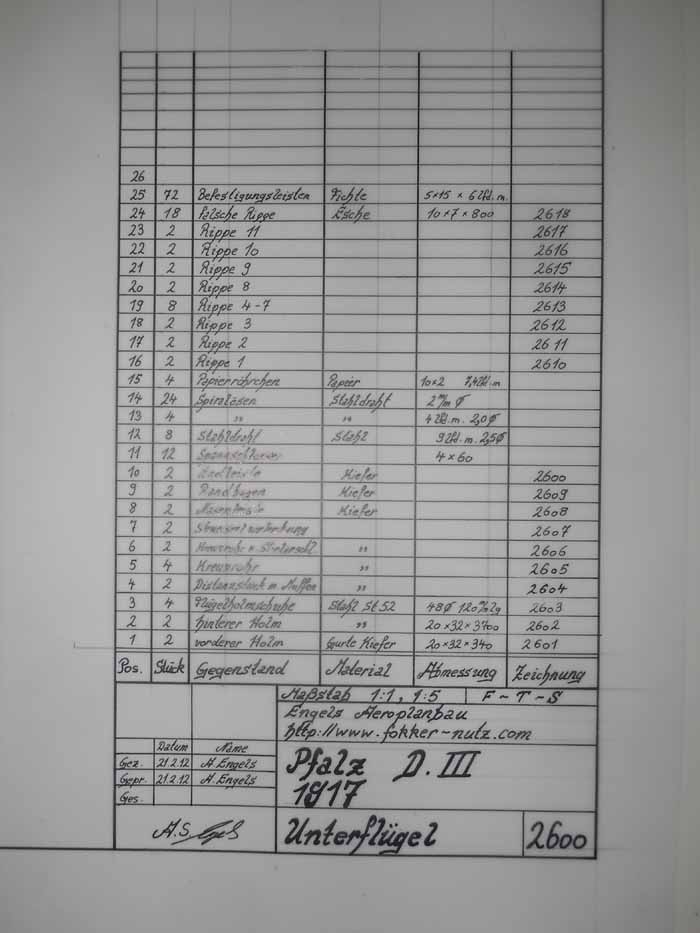 26
25 72 Befestigungsleisten Fichte 5×15 × 6 lfd. m.
24 18 falsche Rippe Esche 10×7×800 2618
23 2 Rippe 11 2617
22 2 Rippe 10 2616
21 2 Rippe 9 2615
20 2 Rippe 8 2614
19 8 Rippe 4-7 2613
18 2 Rippe 3 2612
17 2 Rippe 2 2611
16 2 Rippe 1 2610
15 4 Papierröhrchen Papier 10×2 7,4 lfd. m
14 24 Spiralösen Stahldraht 2 m/m Ø
13 4 " " 4 lfd. m. 2,0 Ø
12 8 Stahldraht Stahl 9 lfd. m. 2,5 Ø
11 12 4×60
10 2 Kiefer 2600
9 2 Randbogen Kiefer 2609
8 2 Nasenleiste Kiefer 2608
7 2 2607
6 2 " 2606
5 4 " 2605
4 2 Distanzstück m. Muffen " 2604
3 4 Flügelholmschuhe Stahl St. 52 2603
2 2 hinterer Holm " 20×32×3400 2602
1 2 vorderer Holm Gurte Kiefer 20×32×340 2601
Pos. Stück Gegenstand Material Abmessung Zeichnung
Maßstab 1:1, 1:5 F-T-S
Engels Aeroplanbau
http://www.fokker-nutz.com
Datum Name
Gez. 21.2.12 A. Engels
Gepr. 21.2.12 A. Engels
Ges.
Pfalz D. III
1917
A.S.
Unterflügel 2600